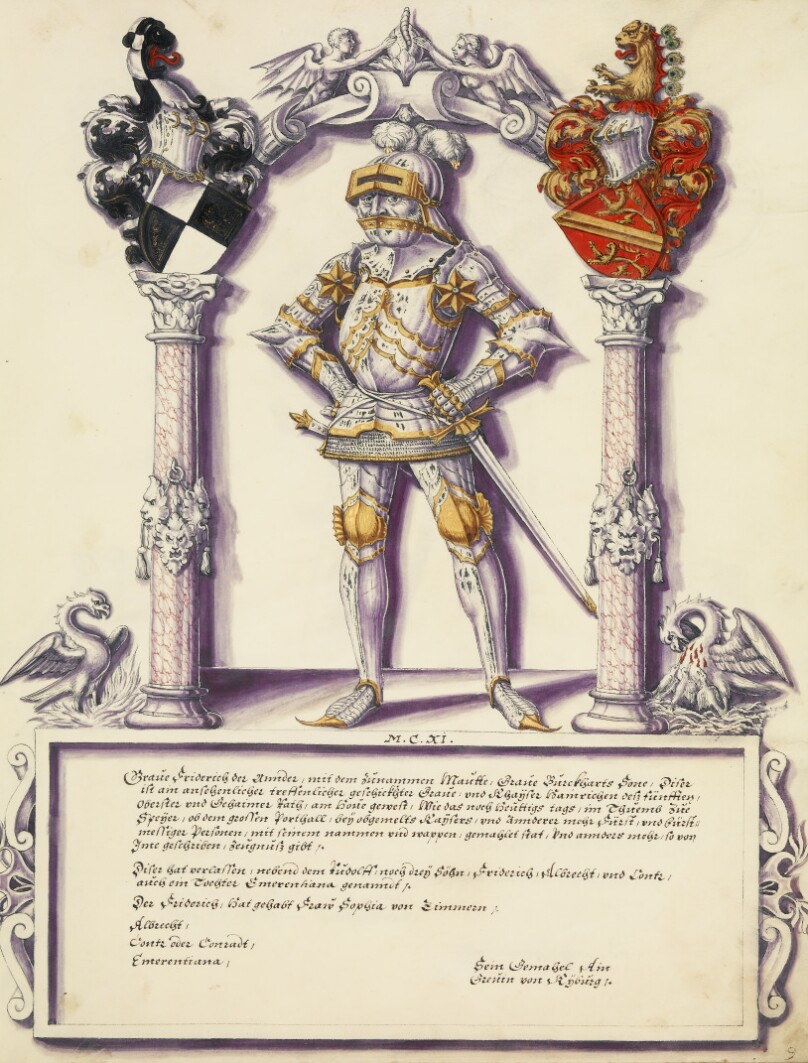 M. C. XI.
Graue Friderich der Annder, mit dem Zunammen Mautte, Graue Burckharts Sone, Diser
ist am ansehenlicher treffenlicher geschickhter Graue, vnd Khayser Hainrichen desz fünfften,
Oberster vnd Gehaimer Rath, am Houe gewest, Wie das noch heuttigs tags, im Thuemb zue
Speyer, ob dem grossen Porthall, bey obgemelts Kaysers, vnd Annderer mehr Fürst, vnd Fürst-
messiger Personen, mit seinem nammen vnd wappen, gemahlet stat, Vnd annders mehr, so von
Ime geschriben, Zeugnusz gibt /.
Diser hat verlassen, nebend dem Rudolff, noch drey Söhn, Friderich, Albrecht, vnd Contz,
auch ein Tochter Emerentiana genanndt /.
Der Friderich, Hat gehabt Fraw Sophia von Zimmern /.
Albrecht,
Contz oder Conradt,
Emerentiana,
Sein Gemahel Ain
Greuin von Kyburg /.
9